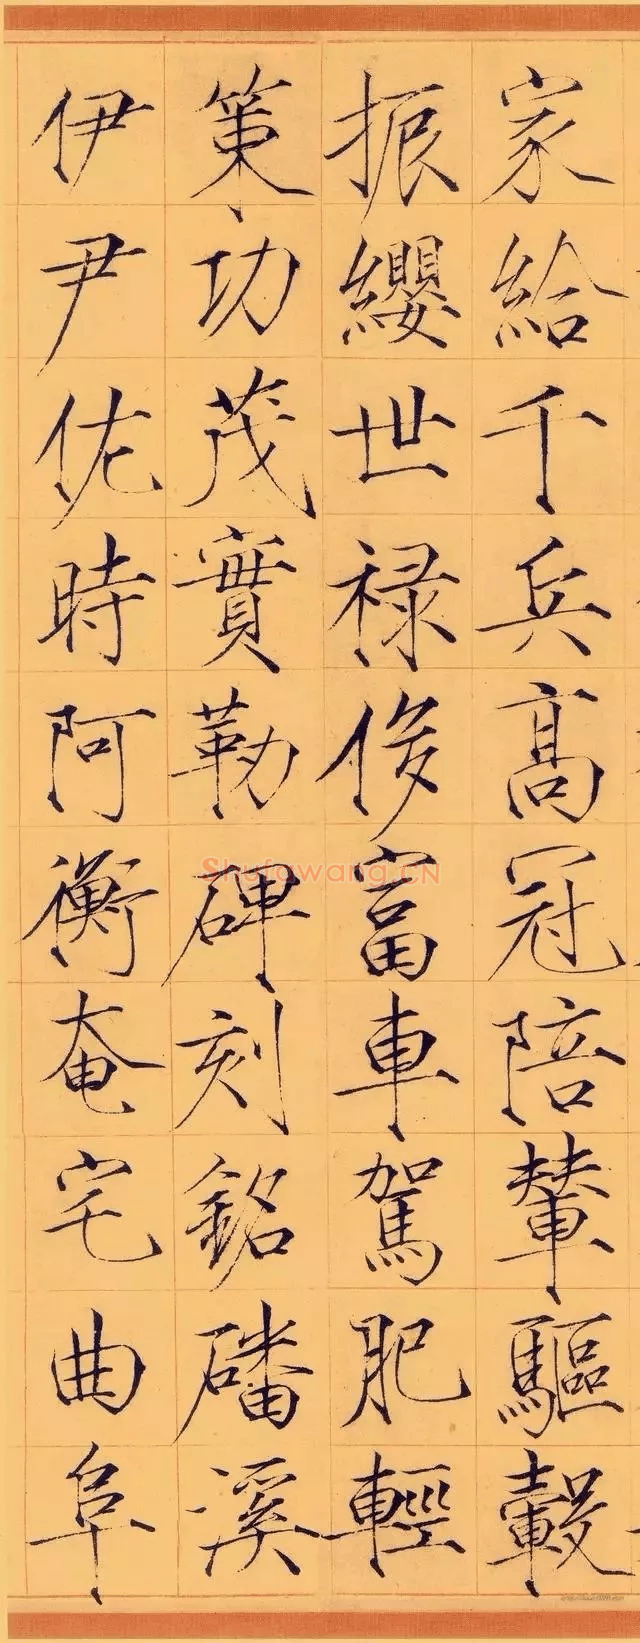 家給千兵高冠陪輦驅轂
振纓世禄侈富車駕肥輕
策功茂實勒碑刻銘磻溪
伊尹佐時阿衡奄宅曲阜
Shufawang.CN